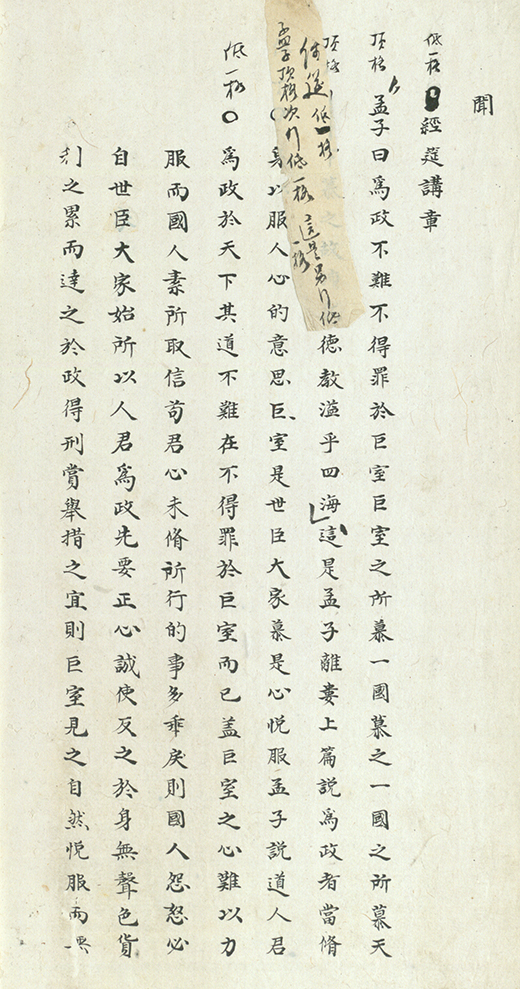 聞
低一格 經筵講章
頂格 孟子曰為政不難不得罪於巨室巨室之所慕一國慕之一國之所慕天
頂格 德教溢乎四海這是孟子離婁上篇說為政者當脩
低一格
孟子頂格次行低一格 這是另行低一格
身以服人心的意思巨室是世臣大家慕是心悅服孟子說道人君
低一格 為政於天下其道不難在不得罪於巨室而已盖巨室之心難以力
服而國人素所取信苟君心未脩所行的事多乖戾則國人怨怒必
自世臣大家始所以人君為政先要正心誠使反之於身無聲色貨
利之累而達之於政得刑賞舉措之宜則巨室見之自然悅服而無